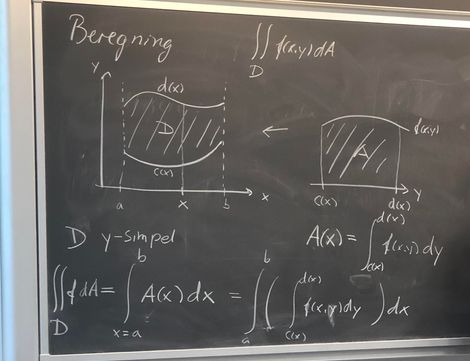 Beregning
∬_D f(x,y) dA
y
d(x)
D
c(x)
a x b x
←
f(x,y)
A
c(x) d(x) y
D y-simpel
A(x) = ∫_{c(x)}^{d(x)} f(x,y) dy
∬_D f dA = ∫_{x=a}^{b} A(x) dx = ∫_a^b ( ∫_{c(x)}^{d(x)} f(x,y) dy ) dx